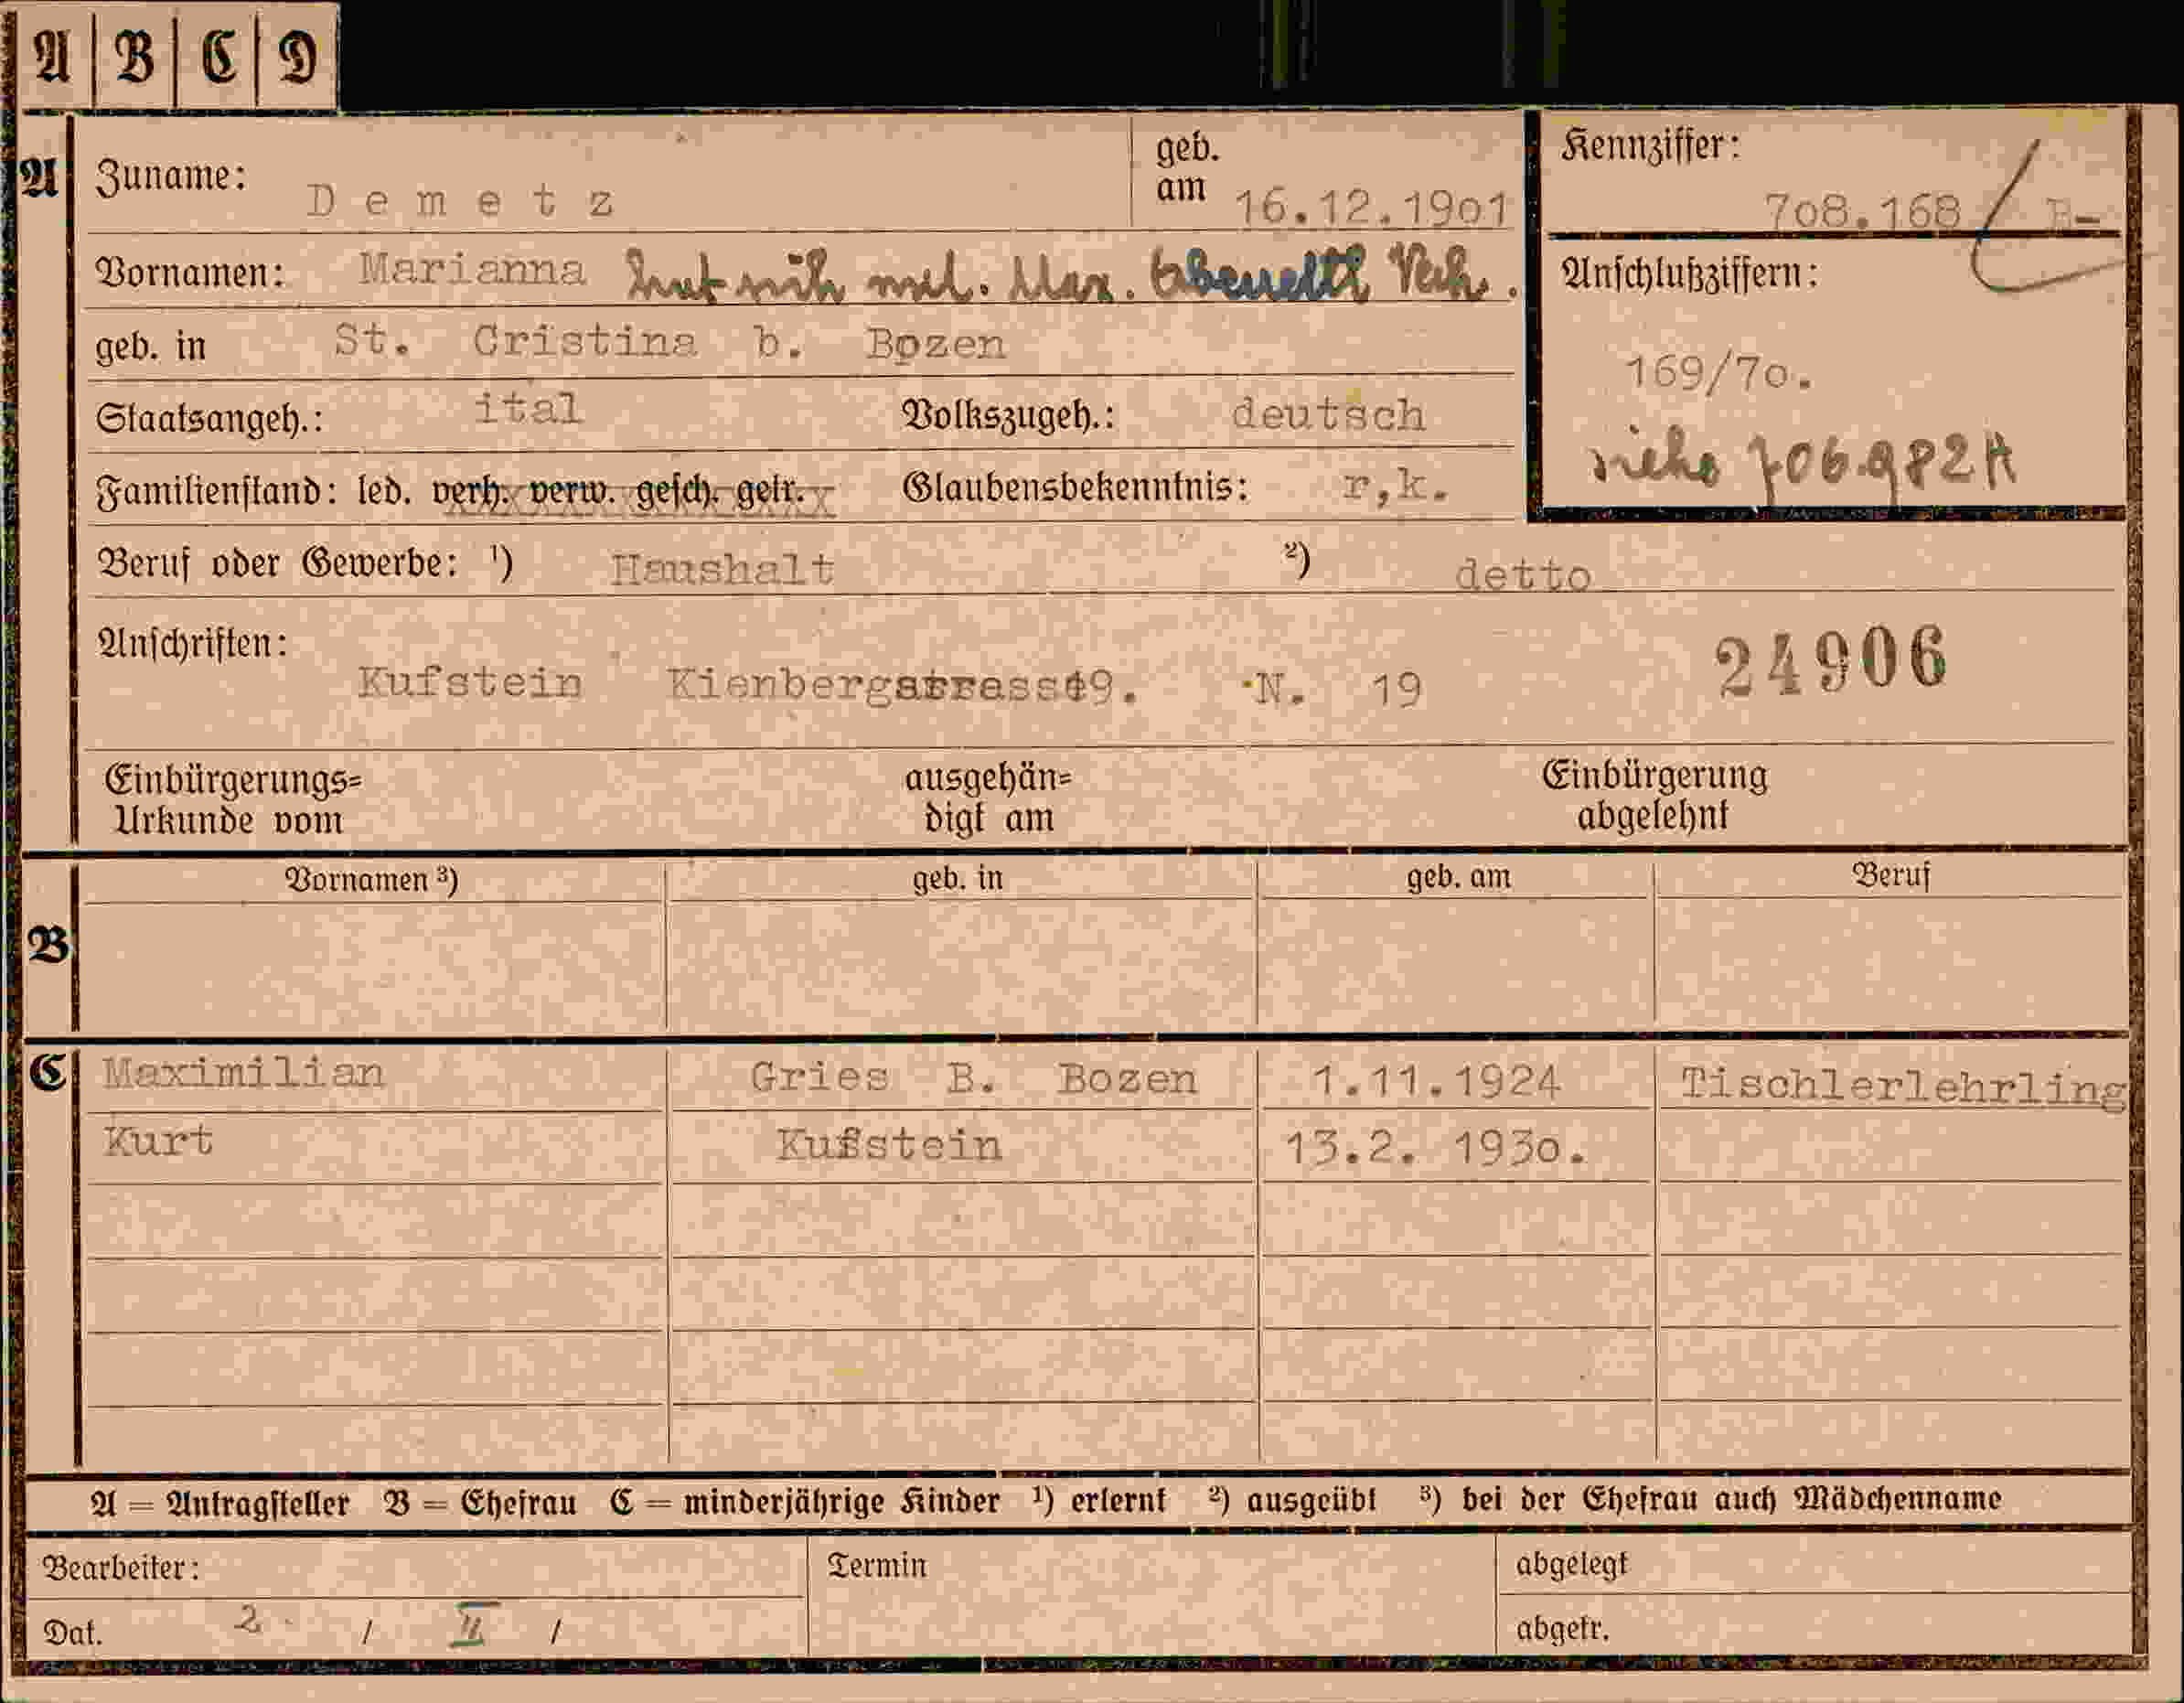 A B C D
A Zuname: Demetz geb. am 16.12.1901
Kennziffer: 708.168
Vornamen: Marianna hat sich mit. Max.
Anschlußziffern:
geb. in St. Cristina b. Bozen
169/70.
Staatsangeh.: ital Volkszugeh.: deutsch
siehe 706.982 A
Familienstand: led. verh. verw. gesch. getr. Glaubensbekenntnis: r,k.
Beruf oder Gewerbe: ¹) Haushalt ²) detto
Anschriften:
24906
Kufstein N. 19
Einbürgerungs= ausgehän= Einbürgerung
Urkunde vom digt am abgelehnt
B Vornamen ³) geb. in geb. am Beruf
C Maximilian Gries B. Bozen 1.11.1924 Tischlerlehrling
Kurt Kufstein 13.2. 1930.
A = Antragsteller B = Ehefrau C = minderjährige Kinder ¹) erlernt ²) ausgeübt ³) bei der Ehefrau auch Mädchenname
Bearbeiter: Termin abgelegt
Dat. 2. / II / abgetr.